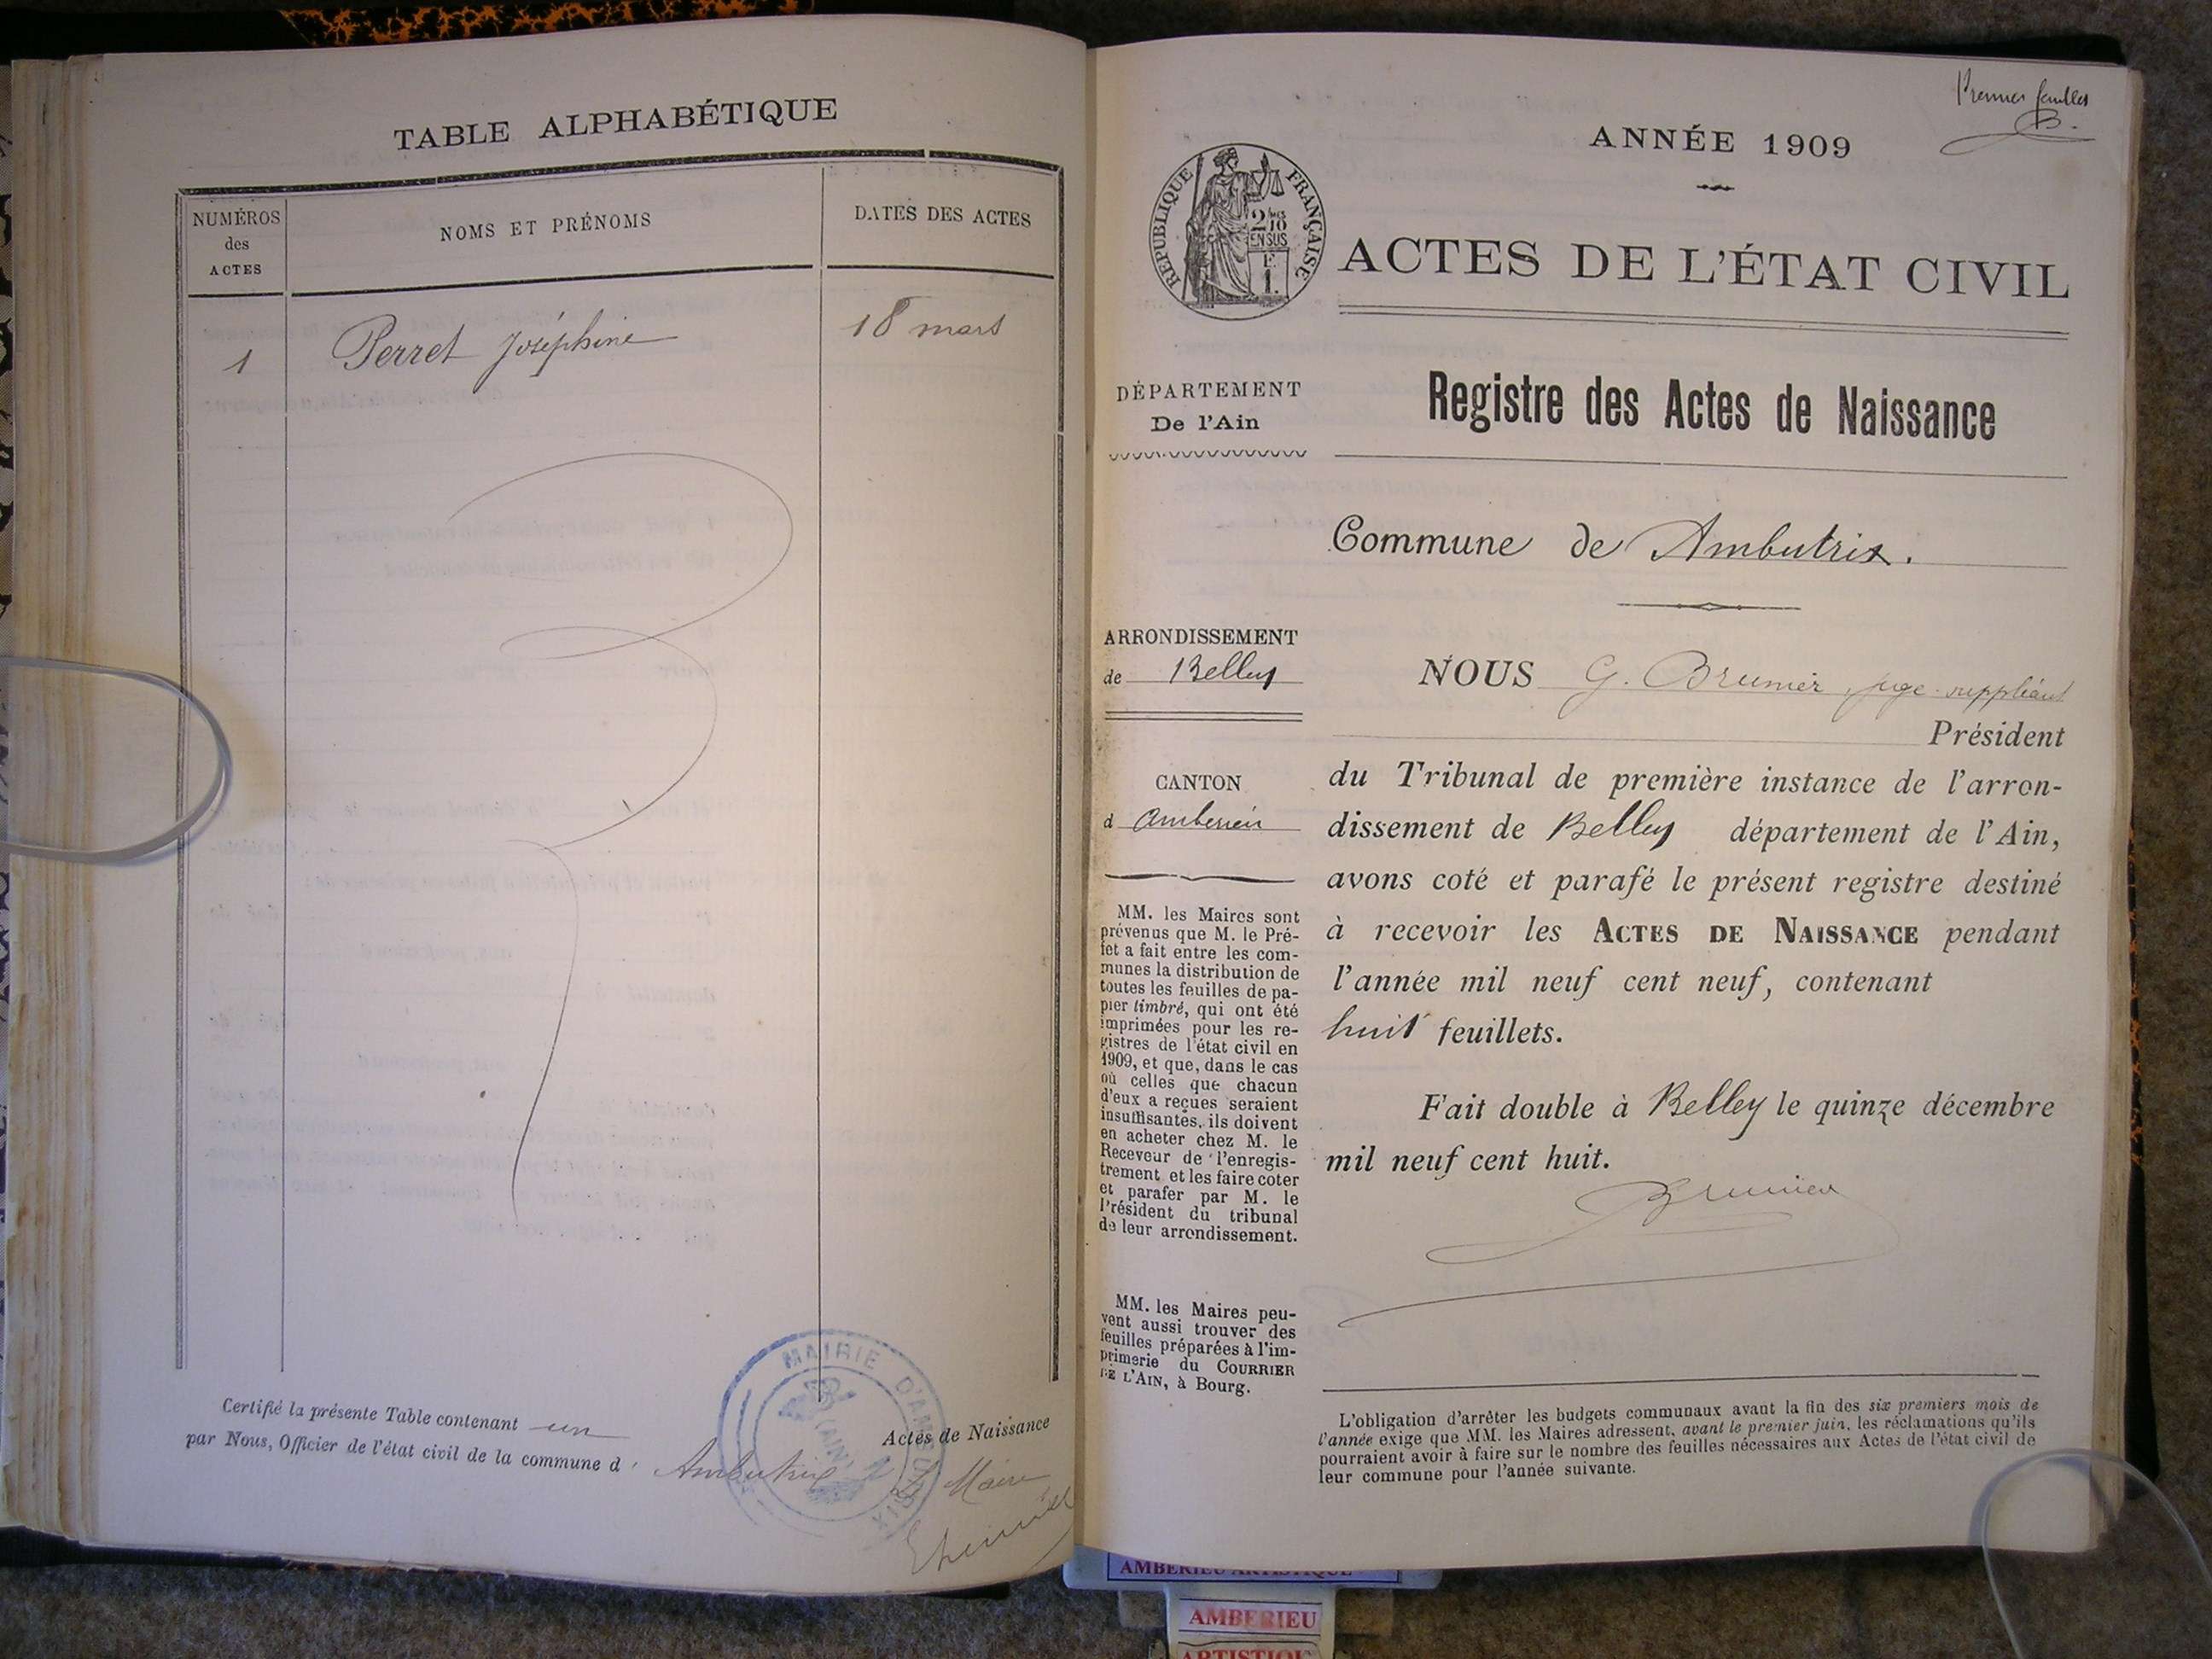 TABLE ALPHABÉTIQUE
NUMÉROS
des
ACTES
NOMS ET PRÉNOMS
DATES DES ACTES
1
Perret Joséphine
18 mars
Certifié la présente Table contenant un
Actes de Naissance
par Nous, Officier de l'état civil de la commune d' Ambutrix
Le Maire
MAIRIE D'AMBUTRIX
(AIN)
Premier feuillet
B.
ANNÉE 1909
RÉPUBLIQUE FRANÇAISE
2/10
EN SUS
F.
1.
ACTES DE L'ÉTAT CIVIL
DÉPARTEMENT
De l'Ain
Registre des Actes de Naissance
Commune de Ambutrix.
ARRONDISSEMENT
de Belley
NOUS G. Brunier, juge suppléant
Président
CANTON
d Ambérieu
du Tribunal de première instance de l'arron-
dissement de Belley département de l'Ain,
avons coté et parafé le présent registre destiné
à recevoir les ACTES DE NAISSANCE pendant
l'année mil neuf cent neuf, contenant
huit feuillets.
Fait double à Belley le quinze décembre
mil neuf cent huit.
Brunier
MM. les Maires sont
prévenus que M. le Pré-
fet a fait entre les com-
munes la distribution de
toutes les feuilles de pa-
pier timbré, qui ont été
imprimées pour les re-
gistres de l'état civil en
1909, et que, dans le cas
où celles que chacun
d'eux a reçues seraient
insuffisantes, ils doivent
en acheter chez M. le
Receveur de l'enregis-
trement et les faire coter
et parafer par M. le
Président du tribunal
de leur arrondissement.
MM. les Maires peu-
vent aussi trouver des
feuilles préparées à l'im-
primerie du COURRIER
DE L'AIN, à Bourg.
L'obligation d'arrêter les budgets communaux avant la fin des six premiers mois de
l'année exige que MM. les Maires adressent, avant le premier juin, les réclamations qu'ils
pourraient avoir à faire sur le nombre des feuilles nécessaires aux Actes de l'état civil de
leur commune pour l'année suivante.
AMBERIEU ARTISTIQUE
AMBERIEU
ARTISTIQU